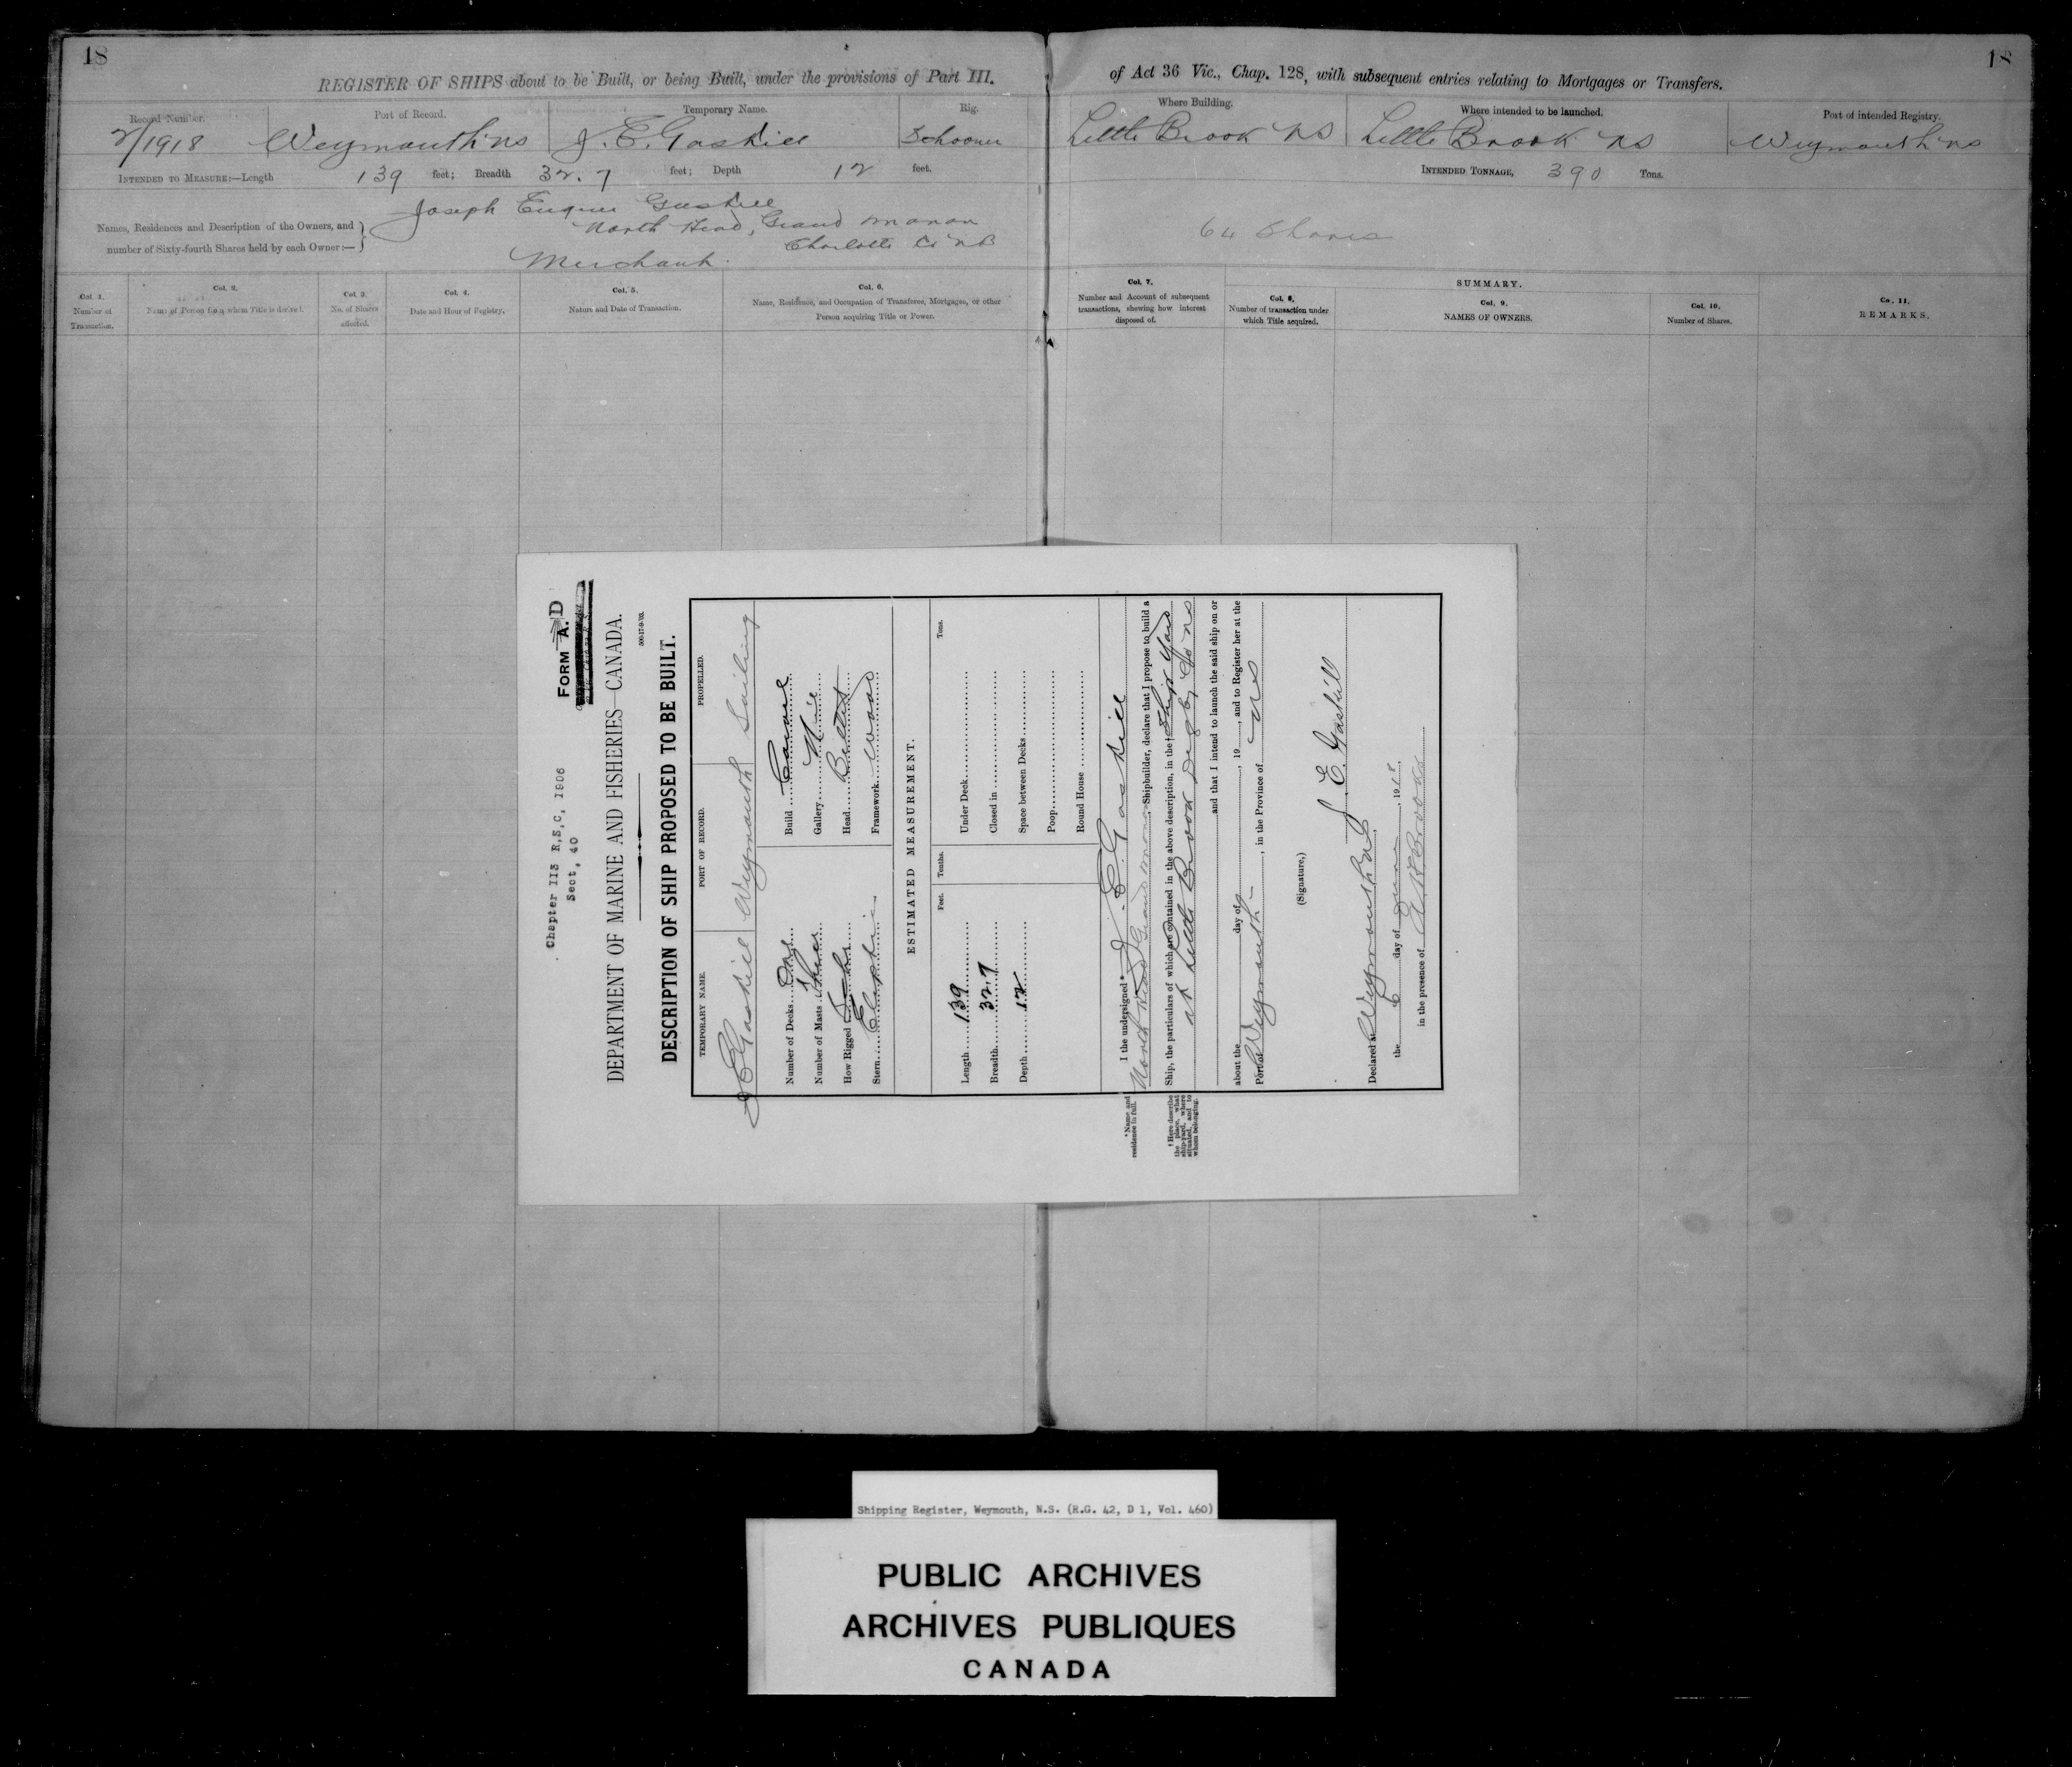 18
18
REGISTER OF SHIPS about to be Built, or being Built, under the provisions of Part III.
of Act 36 Vic., Chap. 128, with subsequent entries relating to Mortgages or Transfers.
Record Number.
Port of Record.
Temporary Name.
Rig.
Where Building.
Where intended to be launched.
Port of intended Registry.
2/1918
Weymouth NS
J. E. Gaskill
Schooner
Little Brook NS
Little Brook NS
Weymouth NS
INTENDED TO MEASURE:—Length 139 feet; Breadth 32.7 feet; Depth 12 feet.
INTENDED TONNAGE, 390 Tons.
Names, Residences and Description of the Owners, and
number of Sixty-fourth Shares held by each Owner:—
Joseph Eugene Gaskill
North Head, Grand Manan
Charlotte Co NB
Merchant.
64 Shares
Col. 1.
Number of
Transaction.
Col. 2.
Name of Person from whom Title is derived.
Col. 3.
No. of Shares
affected.
Col. 4.
Date and Hour of Registry.
Col. 5.
Nature and Date of Transaction.
Col. 6.
Name, Residence, and Occupation of Transferee, Mortgagee, or other
Person acquiring Title or Power.
Col. 7.
Number and Account of subsequent
transactions, shewing how interest
disposed of.
SUMMARY.
Col. 8.
Number of transaction under
which Title acquired.
Col. 9.
NAMES OF OWNERS.
Col. 10.
Number of Shares.
Co. 11.
REMARKS.
Chapter 113 R,S,C, 1906
Sect, 40
FORM A. D
DEPARTMENT OF MARINE AND FISHERIES—CANADA.
500-17-9-'03.
DESCRIPTION OF SHIP PROPOSED TO BE BUILT.
TEMPORARY NAME.
PORT OF RECORD.
PROPELLED.
J E Gaskill
Weymouth
Sailing
Number of Decks One
Number of Masts Three
How Rigged Sch
Stern Eliptic
Build Carvel
Gallery
Head Billet
Framework Wood
ESTIMATED MEASUREMENT.
Feet.
Tenths.
Tons.
Length 139
Breadth 32.7
Depth 12
Under Deck
Closed in
Space between Decks
Poop
Round House
* Name and
residence in full.
I the undersigned * J. E. Gaskill
North Head Grand Manan, Shipbuilder, declare that I propose to build a
† Here describe
the place, what
ship-yard, where
situated, and to
whom belonging.
Ship, the particulars of which are contained in the above description, in the † Ship Yard
at Little Brook Digby Co NS
and that I intend to launch the said ship on or
about the day of , 19 , and to Register her at the
Port of Weymouth , in the Province of NS
(Signature,) J. E. Gaskill
Declared at Weymouth NS,
the 6 day of June, 1918,
in the presence of
Shipping Register, Weymouth, N.S. (R.G. 42, D 1, Vol. 460)
PUBLIC ARCHIVES
ARCHIVES PUBLIQUES
CANADA